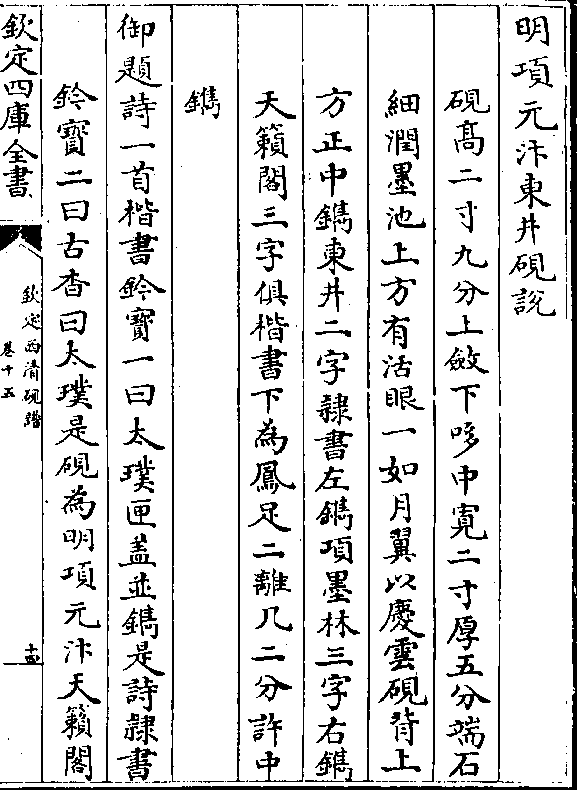 明項元汴東井硯說
硯髙二寸九分上斂下哆中寛二寸厚五分端石
細潤墨池上方有活眼一如月翼以慶雲硯背上
方正中鐫東井二字隸書左鐫項墨林三字右鐫
天籟閣三字俱楷書下為鳳足二離几二分許中
鐫
御題詩一首楷書鈐寳一曰太璞匣蓋並鐫是詩隸書
鈐寳二曰古香曰太璞是硯為明項元汴天籟閣
欽定四庫全書
欽定西清硯譜
卷十五
十四